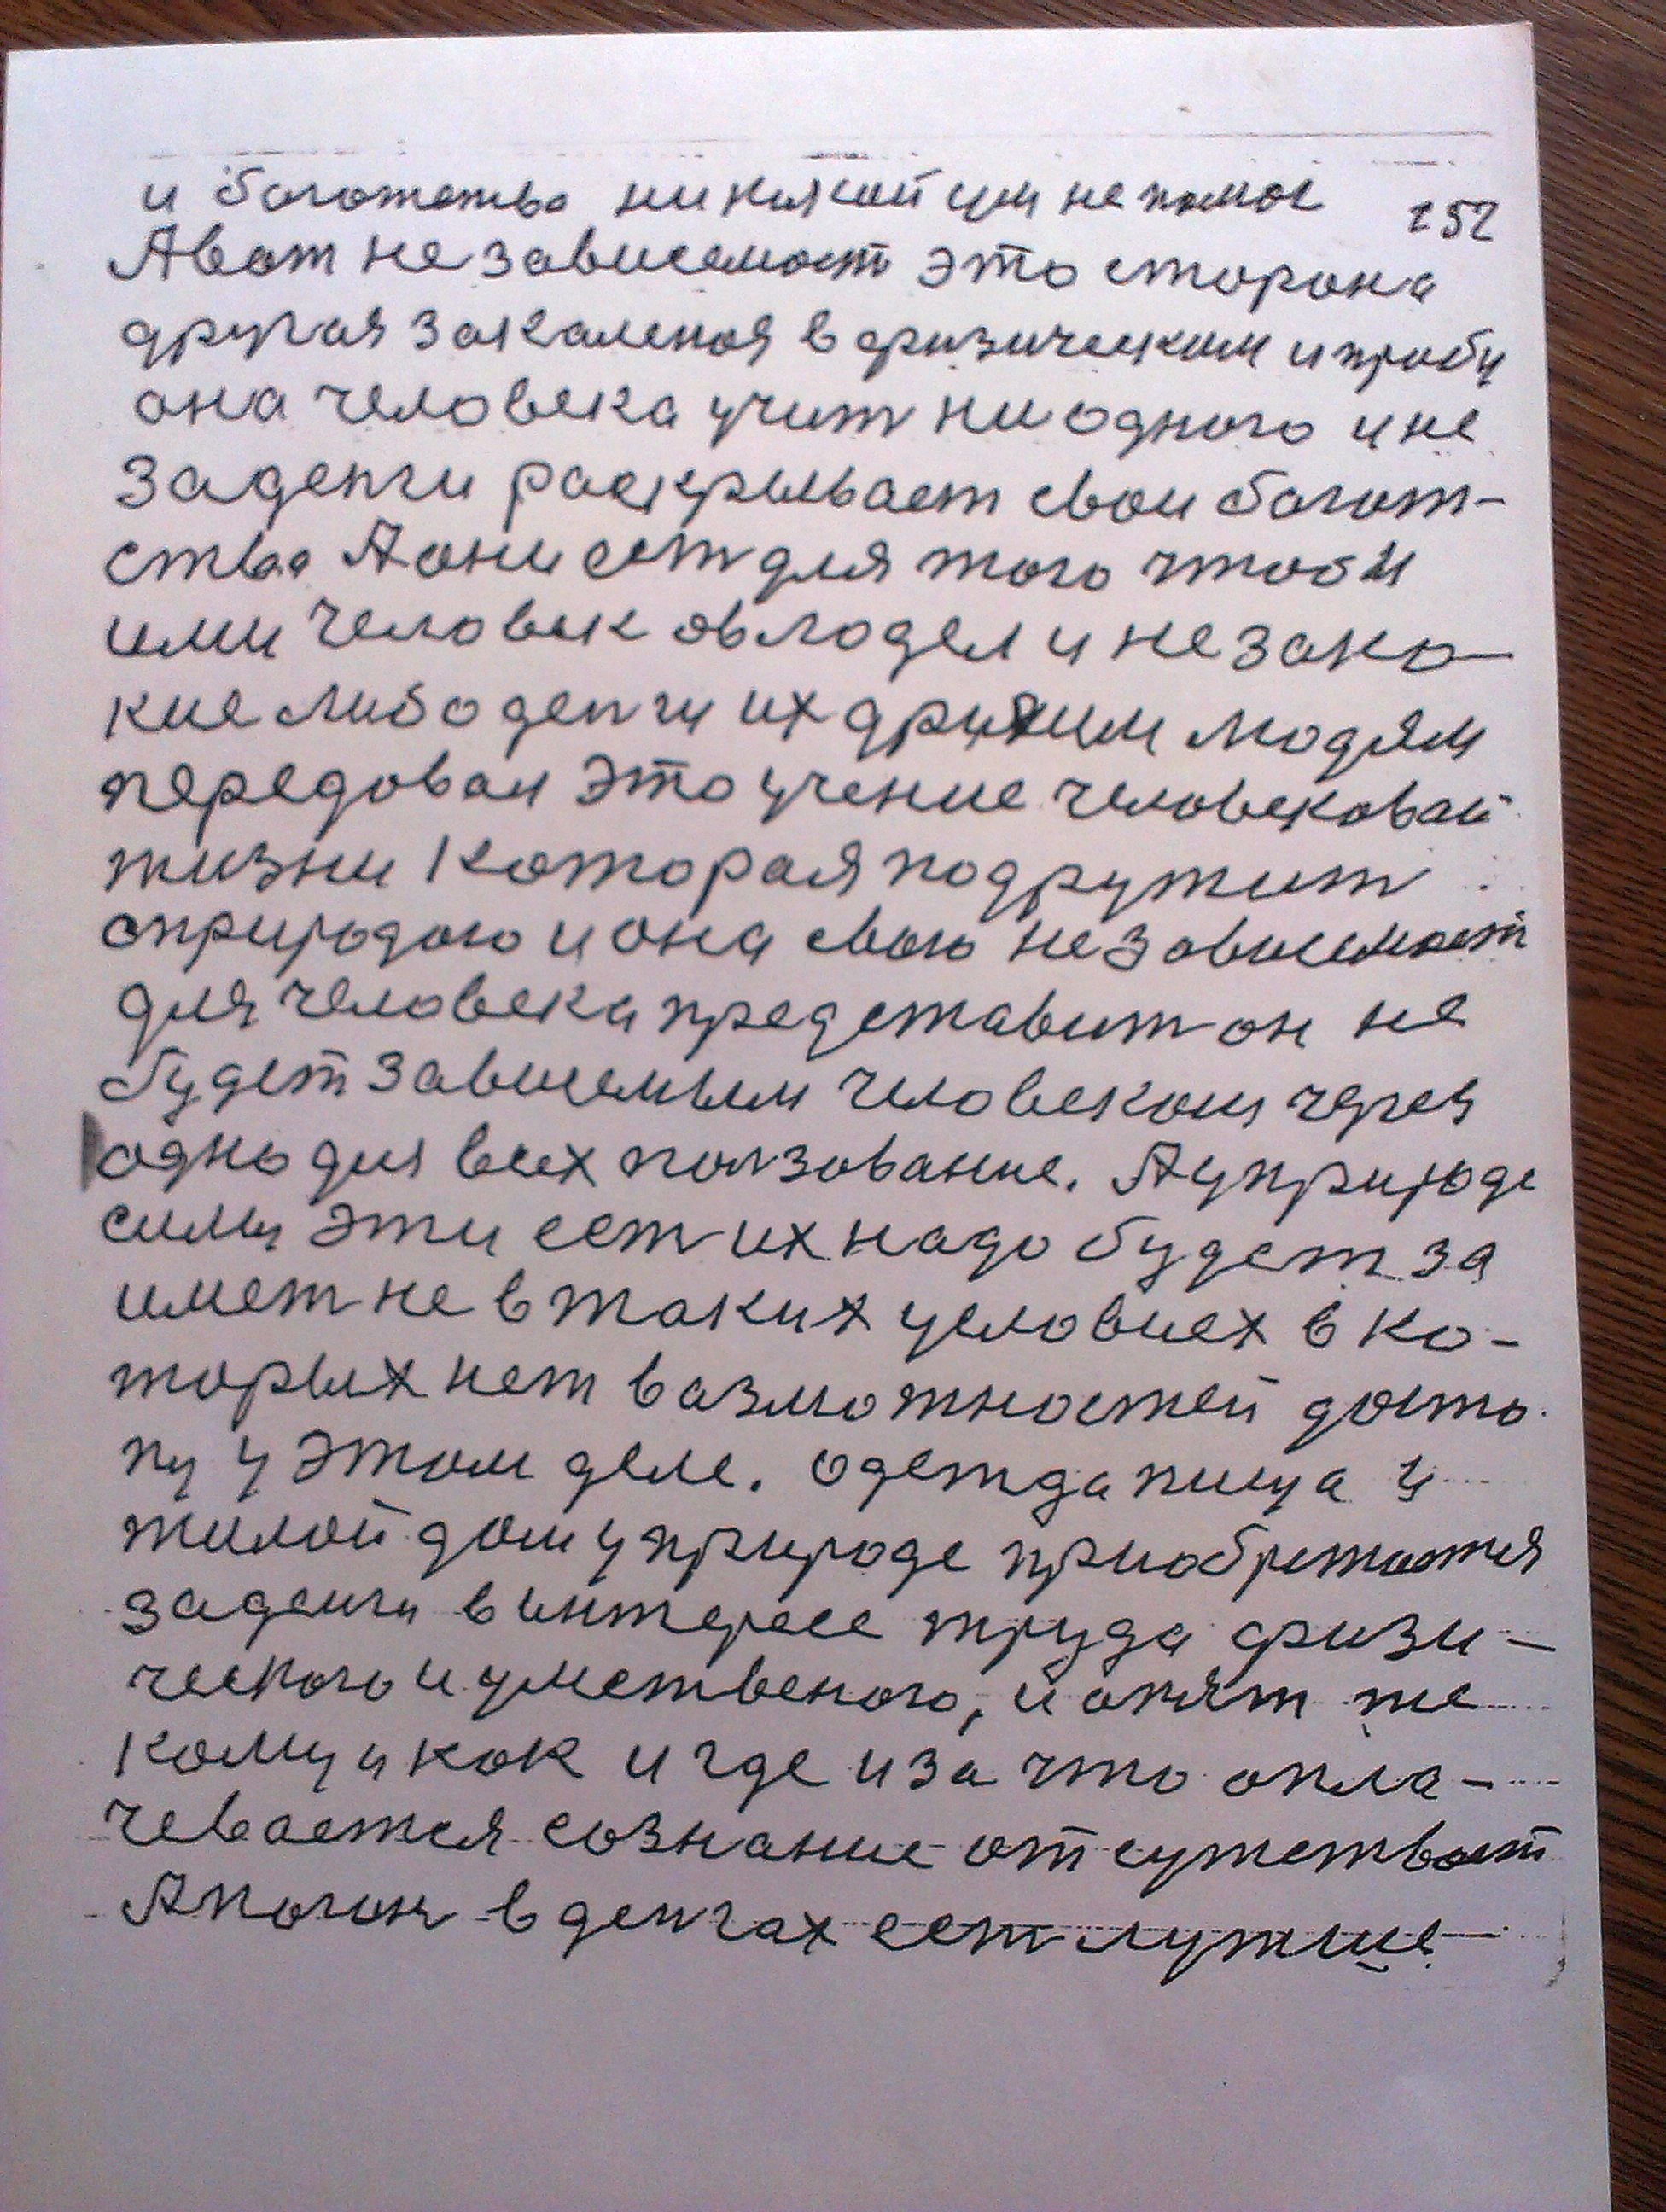 и богатства никакой ум не помог 152
А вот не зависемост это сторона
другая закаленая в физическом и пробу
она человека учит ни одного и не
за денги раскрывает свои богат-
ства А они ест для того чтоби
ими человек овлодел и не за ко-
кие либо денги их другим людям
передовал это учение человековай
жизни Которая подружит
с природою и она свою не зависемост
для человека представит он не
будет зависемым человеком через
одно для всех ползование. А у природе
силы эти ест их надо будет за
имет не в таких условиех в ко-
торых нет вазможностей досто
пу у этом деле. одежда пища и
жилой дом у природе приобретается
за денги в интересе труда физи-
ческого и умственого, и опят же
кому и как и где и за что опла-
чевается сознание отсуживает
А погон в денгах ест лутше